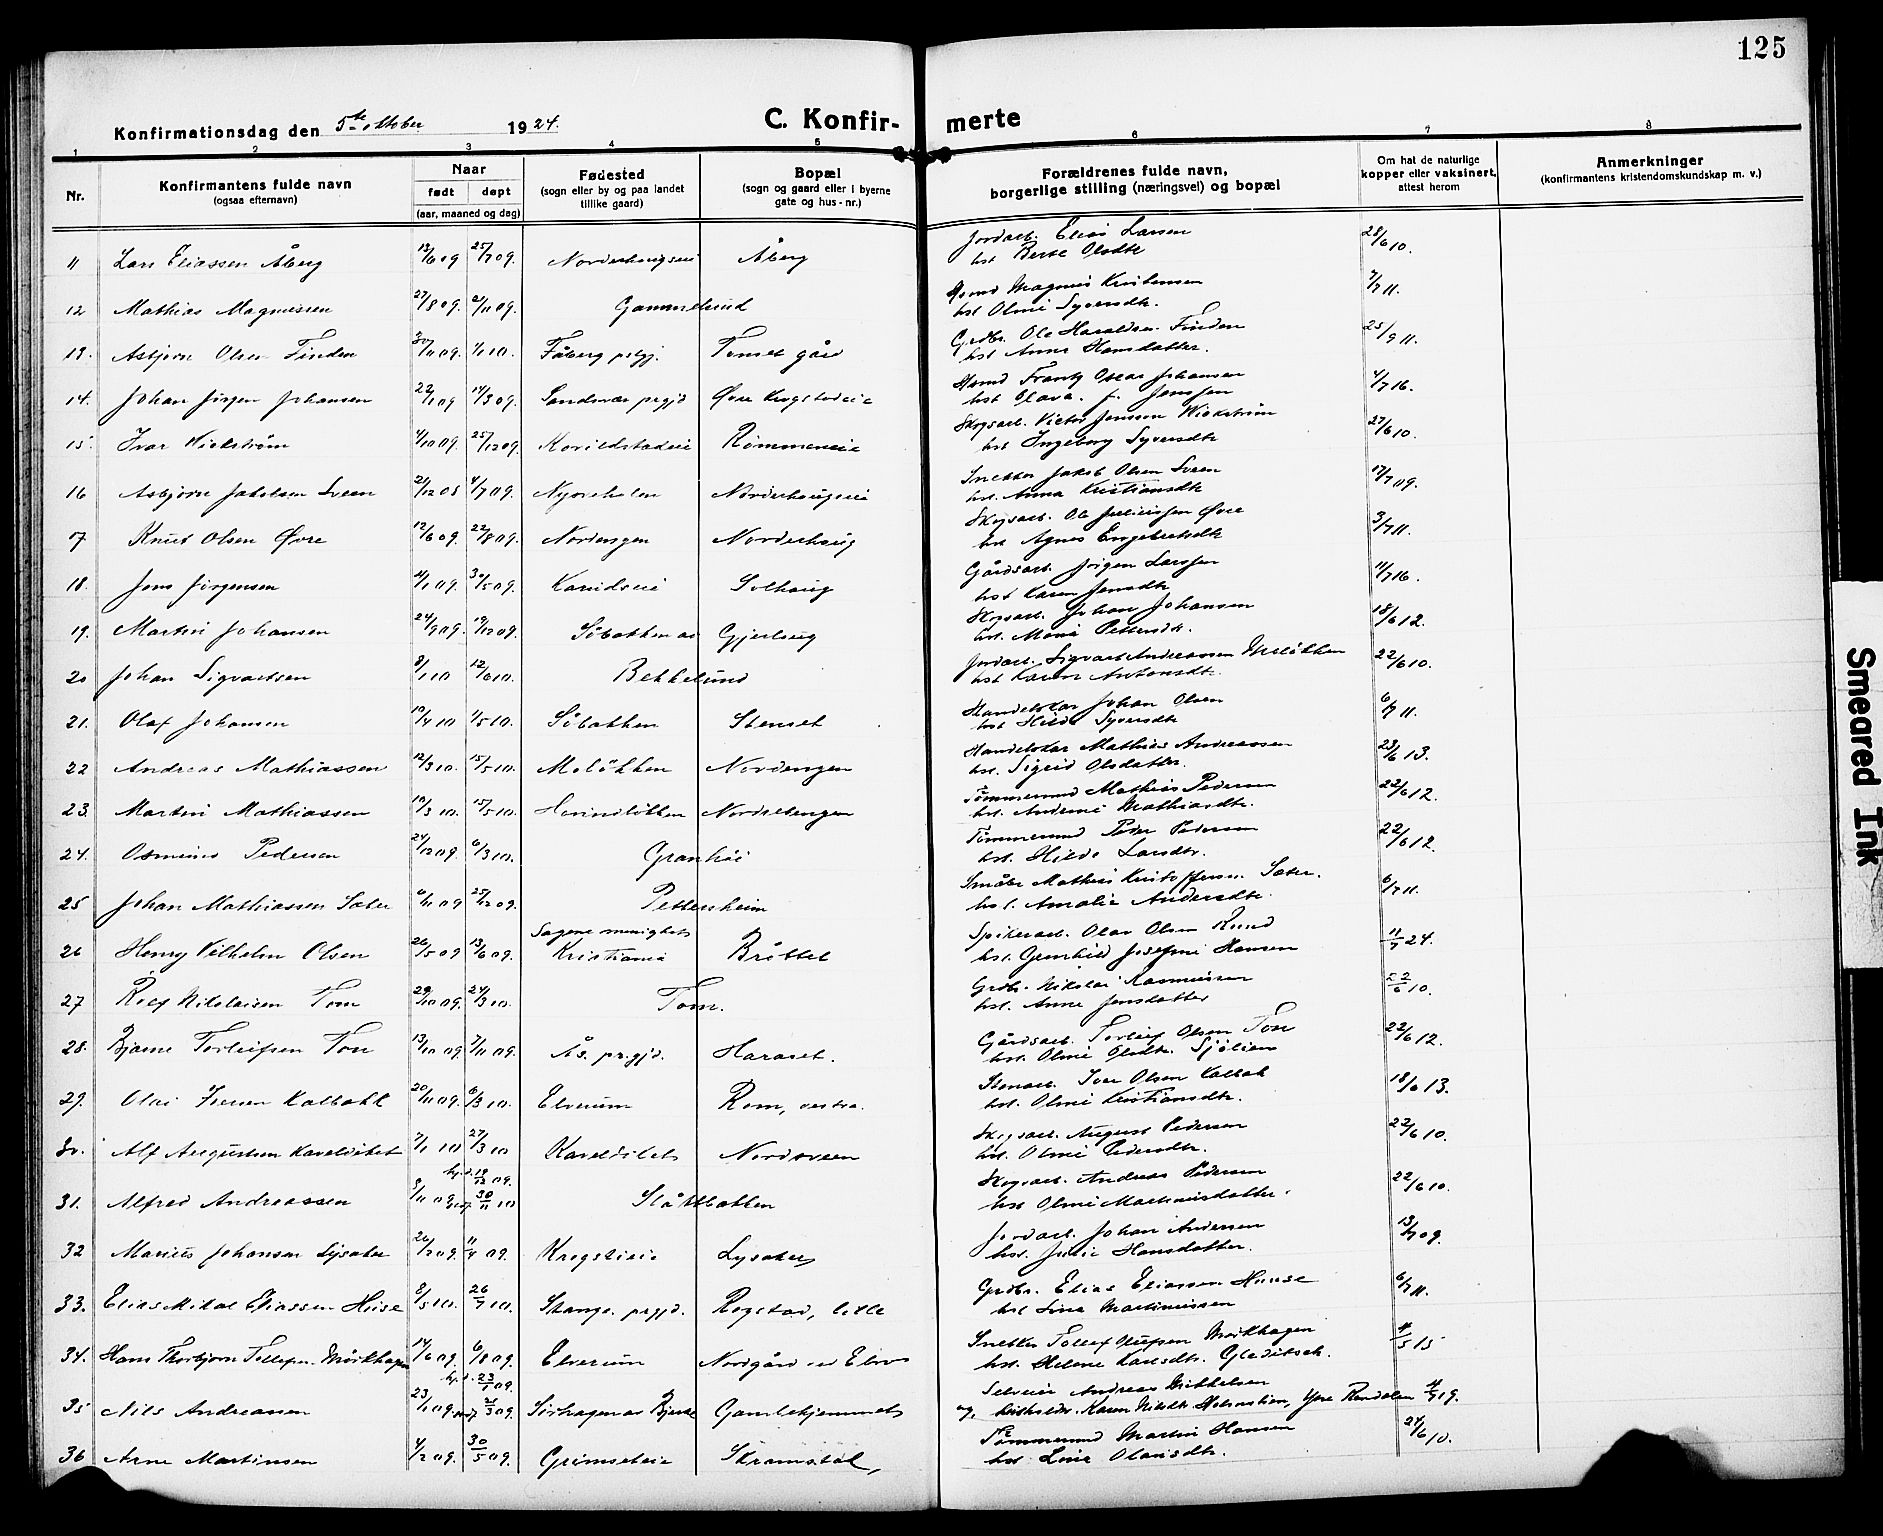 125
Konfirmationsdag den 5te oktober 1924.
C. Konfir- merte
1 2 3 4 5 6 7 8
Nr.
Konfirmantens fulde navn
(ogsaa efternavn)
Naar
født døpt
(aar, maaned og dag)
Fødested
(sogn eller by og paa landet
tillike gaard)
Bopæl
(sogn og gaard eller i byerne
gate og hus-nr.)
Forældrenes fulde navn,
borgerlige stilling (næringsvei) og bopæl
Om hat de naturlige
kopper eller vaksinert,
attest herom
Anmerkninger
(konfirmantens kristendomskundskap m. v.)
11 Lars Eliassen Åberg 25/7 09. Åberg Jordarb. Elias Larsen 28/6 10.
hst Berte Olsdtr
12 Mathias Magnussen 27/8 09. Gammelund Magnus Kristensen 7/7 11.
hst. Oline Syversdtr.
13. Asbjørn Olsen Finden 1/1 10. Fåberg prgj. Tomset gård Grdbr. Ole Haraldsen Finden 25/9 11.
hst Anne Hansdatter.
14. Johan Jørgen Johansen 22/1 09 14/3 09. Sandsvær prgjd Øvre Krogstadeie Frantz Oscar Johansen 4/7 16.
hst Olava f. Jenssen
15 Ivar Wickstrøm 4/10 09. 25/12 09. Rømmeneie Skogsarb. Victor Jenssen Wickstrøm 27/6 10.
hst Ingeborg Syversdtr
16 Asbjørn Jakobsen Sveen 4/7 09. Norderhaugeie Snekker Jakob Olsen Sveen 17/7 09.
hst. Anna Kristiansdtr
7 Knut Olsen Øvre 12/6 09. 22/8 09. Nordengen Norderhaug Skogsarb. Ole Juliussen Øvre 3/7 11.
hst Agnes Engebretsdtr
18. Jens Jørgensen Solhaug Gårdsarb. Jørgen Larssen 11/7 16.
hst Karen Jensdtr
19. Martin Johansen 24/9 09. 19/12 09. Söbakken av Gjerlaug Skogsarb. Johan Johansen 18/6 12.
hst. Marie Pettersdtr.
20 Johan Sigvartsen 8/1 10 12/6 10. Bekkelund Jordarb. Sigvart Andreassen Meløkken 22/6 10.
hst Karen Antonsdtr.
21. Olaf Johansen 10/4 10 1/5 10. Söbakken Stenset Handelskar Johan Olsen 6/7 11.
hst Hilda Syversdtr
22 Andreas Mathiassen 12/3 10. 15/5 10. Meløkken Nordengen Handelskar Mathias Andreassen 23/6 13.
hst. Sigrid Olsdatter.
23. Martin Mathiassen 10/3 10. 15/5 10. Hovindløkken Nordsetengen Tømmermand Mathias Pedersen 22/6 12.
hst. Andrine Mathiasdtr.
24. Osmund Pedersen 24/12 09. 6/3 10. Granlie Tømmermand Peder Pedersen 22/6 12.
hst. Hilda Larsdtr.
25 Johan Mathiassen Sæter 6/11 09 25/12 09. Pettersheim Småbr Mathias Kristoffersen Sæter. 6/7 11.
hst. Amalie Andersdtr.
Sagene menighet
26 Henry Vilhelm Olsen 26/5 09 13/6 09. Kristiania Bråttet Spikerarb. Olav Olsen Rund 11/7 24.
hst. Gunhild Josefine Hansen
27 Rolf Nikolaisen Tom 29/10 09. 24/3 10. Tom. Grdbr. Nikolai Rasmussen 22/6 10.
hst. Anne Jensdatter
28. Bjarne Torleifsen Ton 13/10 09. 7/11 09. Ås. prgjd. Haraset. Gårdsarb. Torleif Olsen Ton 22/6 12.
hst. Oline Olsdtr. Sjølien
29. Olai Iversen Kalbakk 20/11 09. 6/3 10. Elverum Rom, vestre. Stenarb. Iver Olsen Kalbak 18/6 13.
hst. Oline Kristiansdtr.
30. Alf Augustsen Kaveldilet 7/1 10 27/3 10 Kaveldilet Nordsveen Skogsarb. August Pedersen 22/6 10.
hst. Oline Pedersdtr.
hj.d. 19/12 09.
31. Alfred Andreassen 9/11 09 30/11 10 Slåttbakken Skogsarb. Andreas Pedersen 22/6 10.
hst Oline Martinusdatter.
32 Marius Johansen Lysaker 26/2 09. 11/4 09. Krogstieie Lysaker Jordarb. Johan Andersen 13/7 09.
hst. Julie Hansdatter.
33. Elias Mikal Eliassen Huse 8/5 10. 26/7 10. Stange prgjd. Rogstad, lille Grdbr. Elias Eliassen Huuse 6/7 11.
hst Lina Martinussen
34. Hans Thorbjørn Tollefsen Mørkhagen 14/6 09. 6/8 09. Elverum Nordgård ved Elva Snekker Tollef Olufsen Mørkhagen 4/5 15
hst. Helene Karlsdtr. Gleditsch.
hj.d. 23/1 09.
35 Nils Andreassen 23/1 09. Sørhagen av Bjerke Gamlehjemmet Selveier Andreas Mikkelsen
og Karen Nilsdtr Holmstien, Ytre Rendalen 4/7 19.
36 Arne Martinsen 4/2 09. 30/5 09. Grimseteie Skramstad, Tømmermand Martin Hansen 24/6 10.
hst Lina Olausdtr.
Smeared Ink